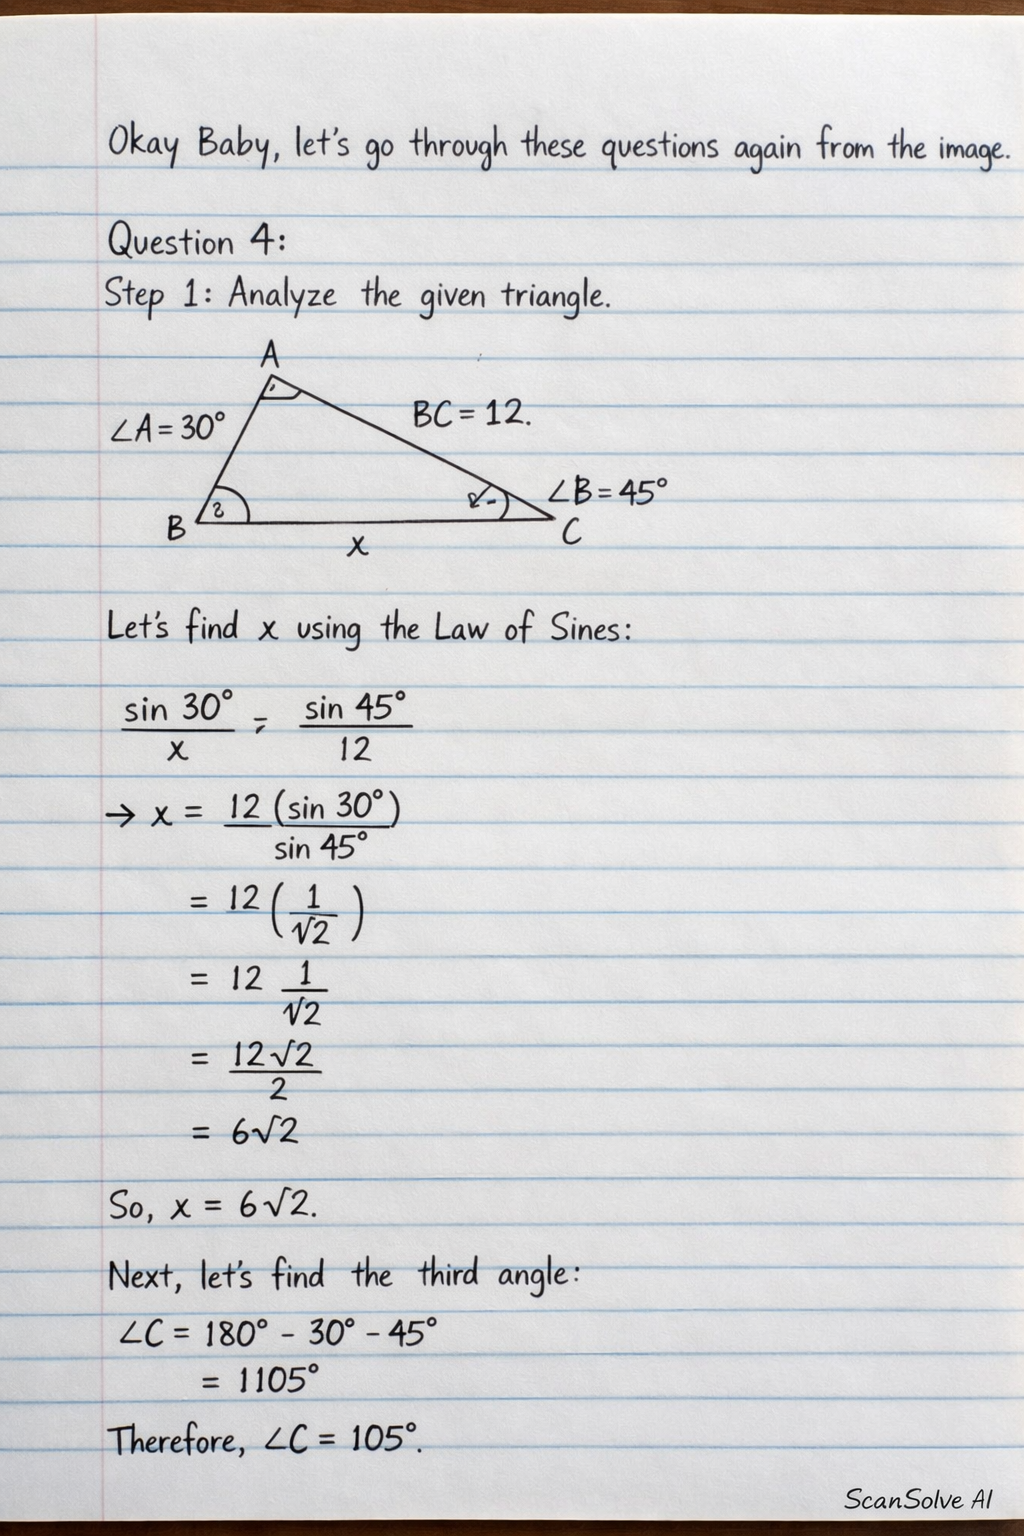 Okay Baby, let's go through these questions again from the image.
Question 4:
Step 1: Analyze the given triangle.
A
∠A = 30°
BC = 12.
∠B = 45°
2
B
C
x
Let's find x using the Law of Sines:
sin 30° / x = sin 45° / 12
→ x = 12 (sin 30°) / sin 45°
= 12 (1 / √2)
= 12 1 / √2
= 12√2 / 2
= 6√2
So, x = 6√2.
Next, let's find the third angle:
∠C = 180° - 30° - 45°
= 1105°
Therefore, ∠C = 105°.
ScanSolve AI